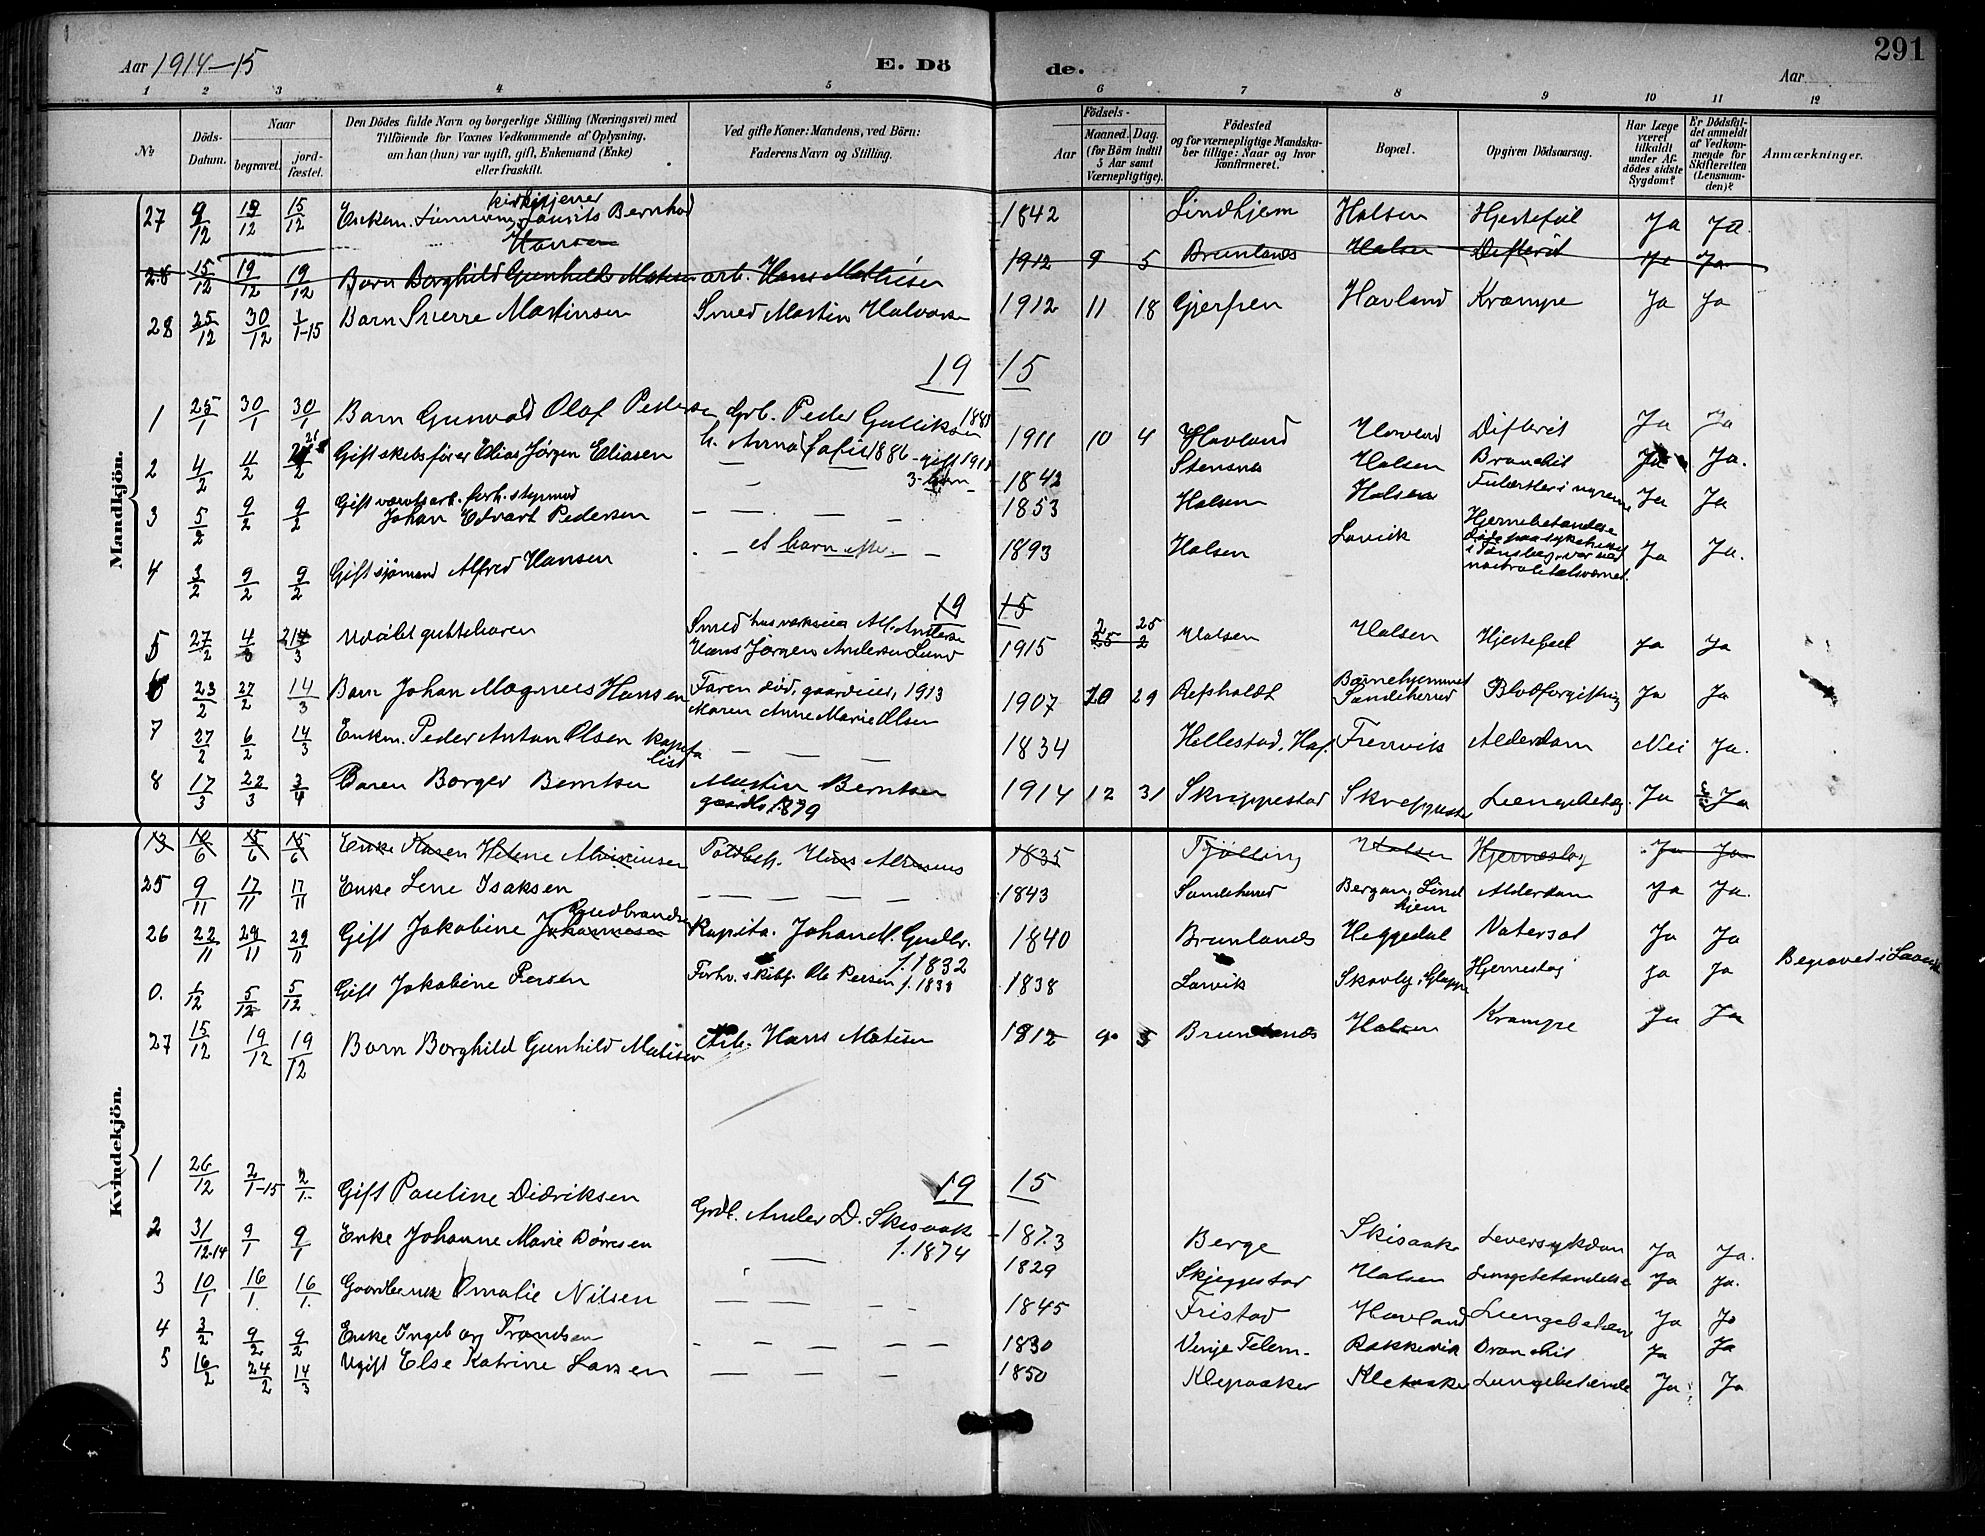 Aar 1914-15 E. Dö de. Aar 291
1 2 3 4 5 6 7 8 9 10 11 12
№ Döds-Datum. Naar begravet. jord-fæstet. Den Dödes fulde Navn og borgerlige Stilling (Næringsvei) med Tilföiende for Voxnes Vedkommende af Oplysning, om han (hun) var ugift, gift, Enkemand (Enke) eller fraskilt. Ved gifte Koner: Mandens, ved Börn: Faderens Navn og Stilling. Födsels- Aar Maaned. Dag. (for Börn indtil 5 Aar samt Værnepligtige). Födested og for værnepligtige Mandskaber tillige: Naar og hvor konfirmeret. Bopæl. Opgiven Dödsaarsag. Har Læge været tilkaldt under Afdödes sidste Sygdom? Er Dödsfaldet anmeldt af Vedkommende for Skifteretten (Lensmanden)? Anmærkninger.
Mandkjön.
kirketjener
27 9/12 19/12 15/12 Enkem. Bernhard 1842 Lindhjem Halsen Hjertefeil Ja Ja.
Hansen
28 15/12 19/12 19/12 Barn Borghild Gunhild Matisen arb. Hans Mathisen 1912 9 5 Brunlanes Halsen Difterit Ja Ja
28 25/12 30/12 1/1-15 Barn Sverre Martinsen Smed Martin Halvorsen 1912 11 18 Gjerpen Havland Krampe Ja Ja
19 15
1 25/1 30/1 30/1 Barn Gunvald Olaf Pedersen Grb. Peder Gulliksen 1911 10 4 Havland Havland Difterit Ja Ja
h. Anna Sofie 1886 - gift 1911
2 4/2 11/2 Gift skibsfører Elias Jørgen Eliasen — — 3 børn 1842 Stensnes Halsen Bronchit Ja Ja.
3 5/2 9/2 9/2 Gift værftsarb. forh. styrmand Johan Edvart Pedersen — — — 1853 Halsen Halsen Ja Ja
4 3/2 9/2 9/2 Gift sjömand Alfred Hansen — et barn efter — 1893 Halsen Larvik Hjernebetændelse Døde paa sykehuset i Tønsberg, var ved nøitralitetsværnet. Ja Ja.
19 15
5 27/2 4/3 Udöbt guttebarn Smed Hans Jørgen Andersen Lund 1915 2 25 Halsen Halsen Hjertefeil Ja Ja
6 23/2 27/2 14/3 Barn Johan Magnus Hansen Faren död, gaardeier, 1913 Maren Anne Marie Olsen 1907 10 29 Refsholdt Barnehjemmet Sandeherred Blodforgiftning Ja Ja
7 27/2 6/2 14/3 Enkm. Peder Anton Olsen kapitalist — — 1834 Hellestad, Frenvik Alderdom Nei Ja.
8 17/3 22/3 3/4 Baren Borger Berntsen Martin Berntsen gaardb. 1879 1914 12 31 Skreppestad Skreppestad Lungebetæ. Ja Ja
Kvindekjön.
13 10/6 15/6 15/6 Enke Karen Helene Toldbetj. Hans 1835 Tjølling Halsen Hjerneslag Ja Ja
25 9/11 17/11 17/11 Enke Lene Isaksen — — — — 1843 Sandeherred Bergan, Lindhjem Alderdom Ja Ja.
26 22/11 29/11 29/11 Gift Jakobine Johannesen Gudbrandsen Kapita. Johan M. Gudbr. f. 1832 1840 Brunlanes Heggedal Vatersot Ja Ja
0. 1/12 5/12 5/12 Gift Jakobine Persen Forhv. skibsf. Ole Persen f. 1838 1838 Larvik Skovly, Hjerneslag Ja Ja Begravet i Larvik
27 15/12 19/12 19/12 Barn Borghild Gunhild Matisen Arb. Hans Matisen 1912 9 5 Brunlanes Halsen Krampe Ja Ja
19 15
1 26/12 2/1-15 2/1. Gift Pauline Didriksen Grdb. Anders D. Skisaak f. 1874 1873 Berge Skisaake Leversykdom Ja Ja.
2 31/12-14 9/1 9/1 Enke Johanne Marie Dørresen — 1829 Skjeggestad Halsen Lungebetændelse Ja Ja.
3 10/1 16/1. 16/1. Gaardbenk Omalie Nilsen — — - - 1845 Fristad Havland Lungebetæn Ja Ja
4 3/2 9/2 9/2 Enke Ingeborg Trondsen - - — — — 1830 Vinje Telem- Rakkevik Bronchit Ja Ja
5 16/2 24/2 14/3 Ugift Else Katrine Larsen — — — 1850 Klepaaker Klepaaker Lungebetænde Ja Ja